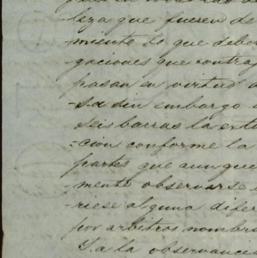 liza que fueren de
miento lo que debe
gaciones que contra
pasan en virtud
sa sin embargo
seis barras la
cion conforme la
partes que aunque
mente observarse
riese alguna difer
por arbitros nombra
Y a la observanci